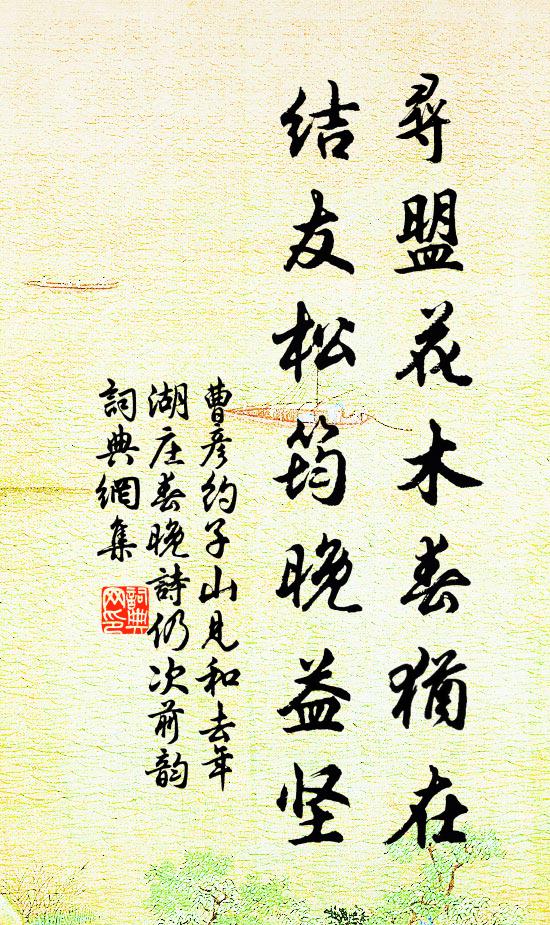 尋盟花木春猶在
结友松筠晚益坚
曹彦约子山見和去年
湖庄春晚詩仍次前韵
詞典網集
詞典
网印